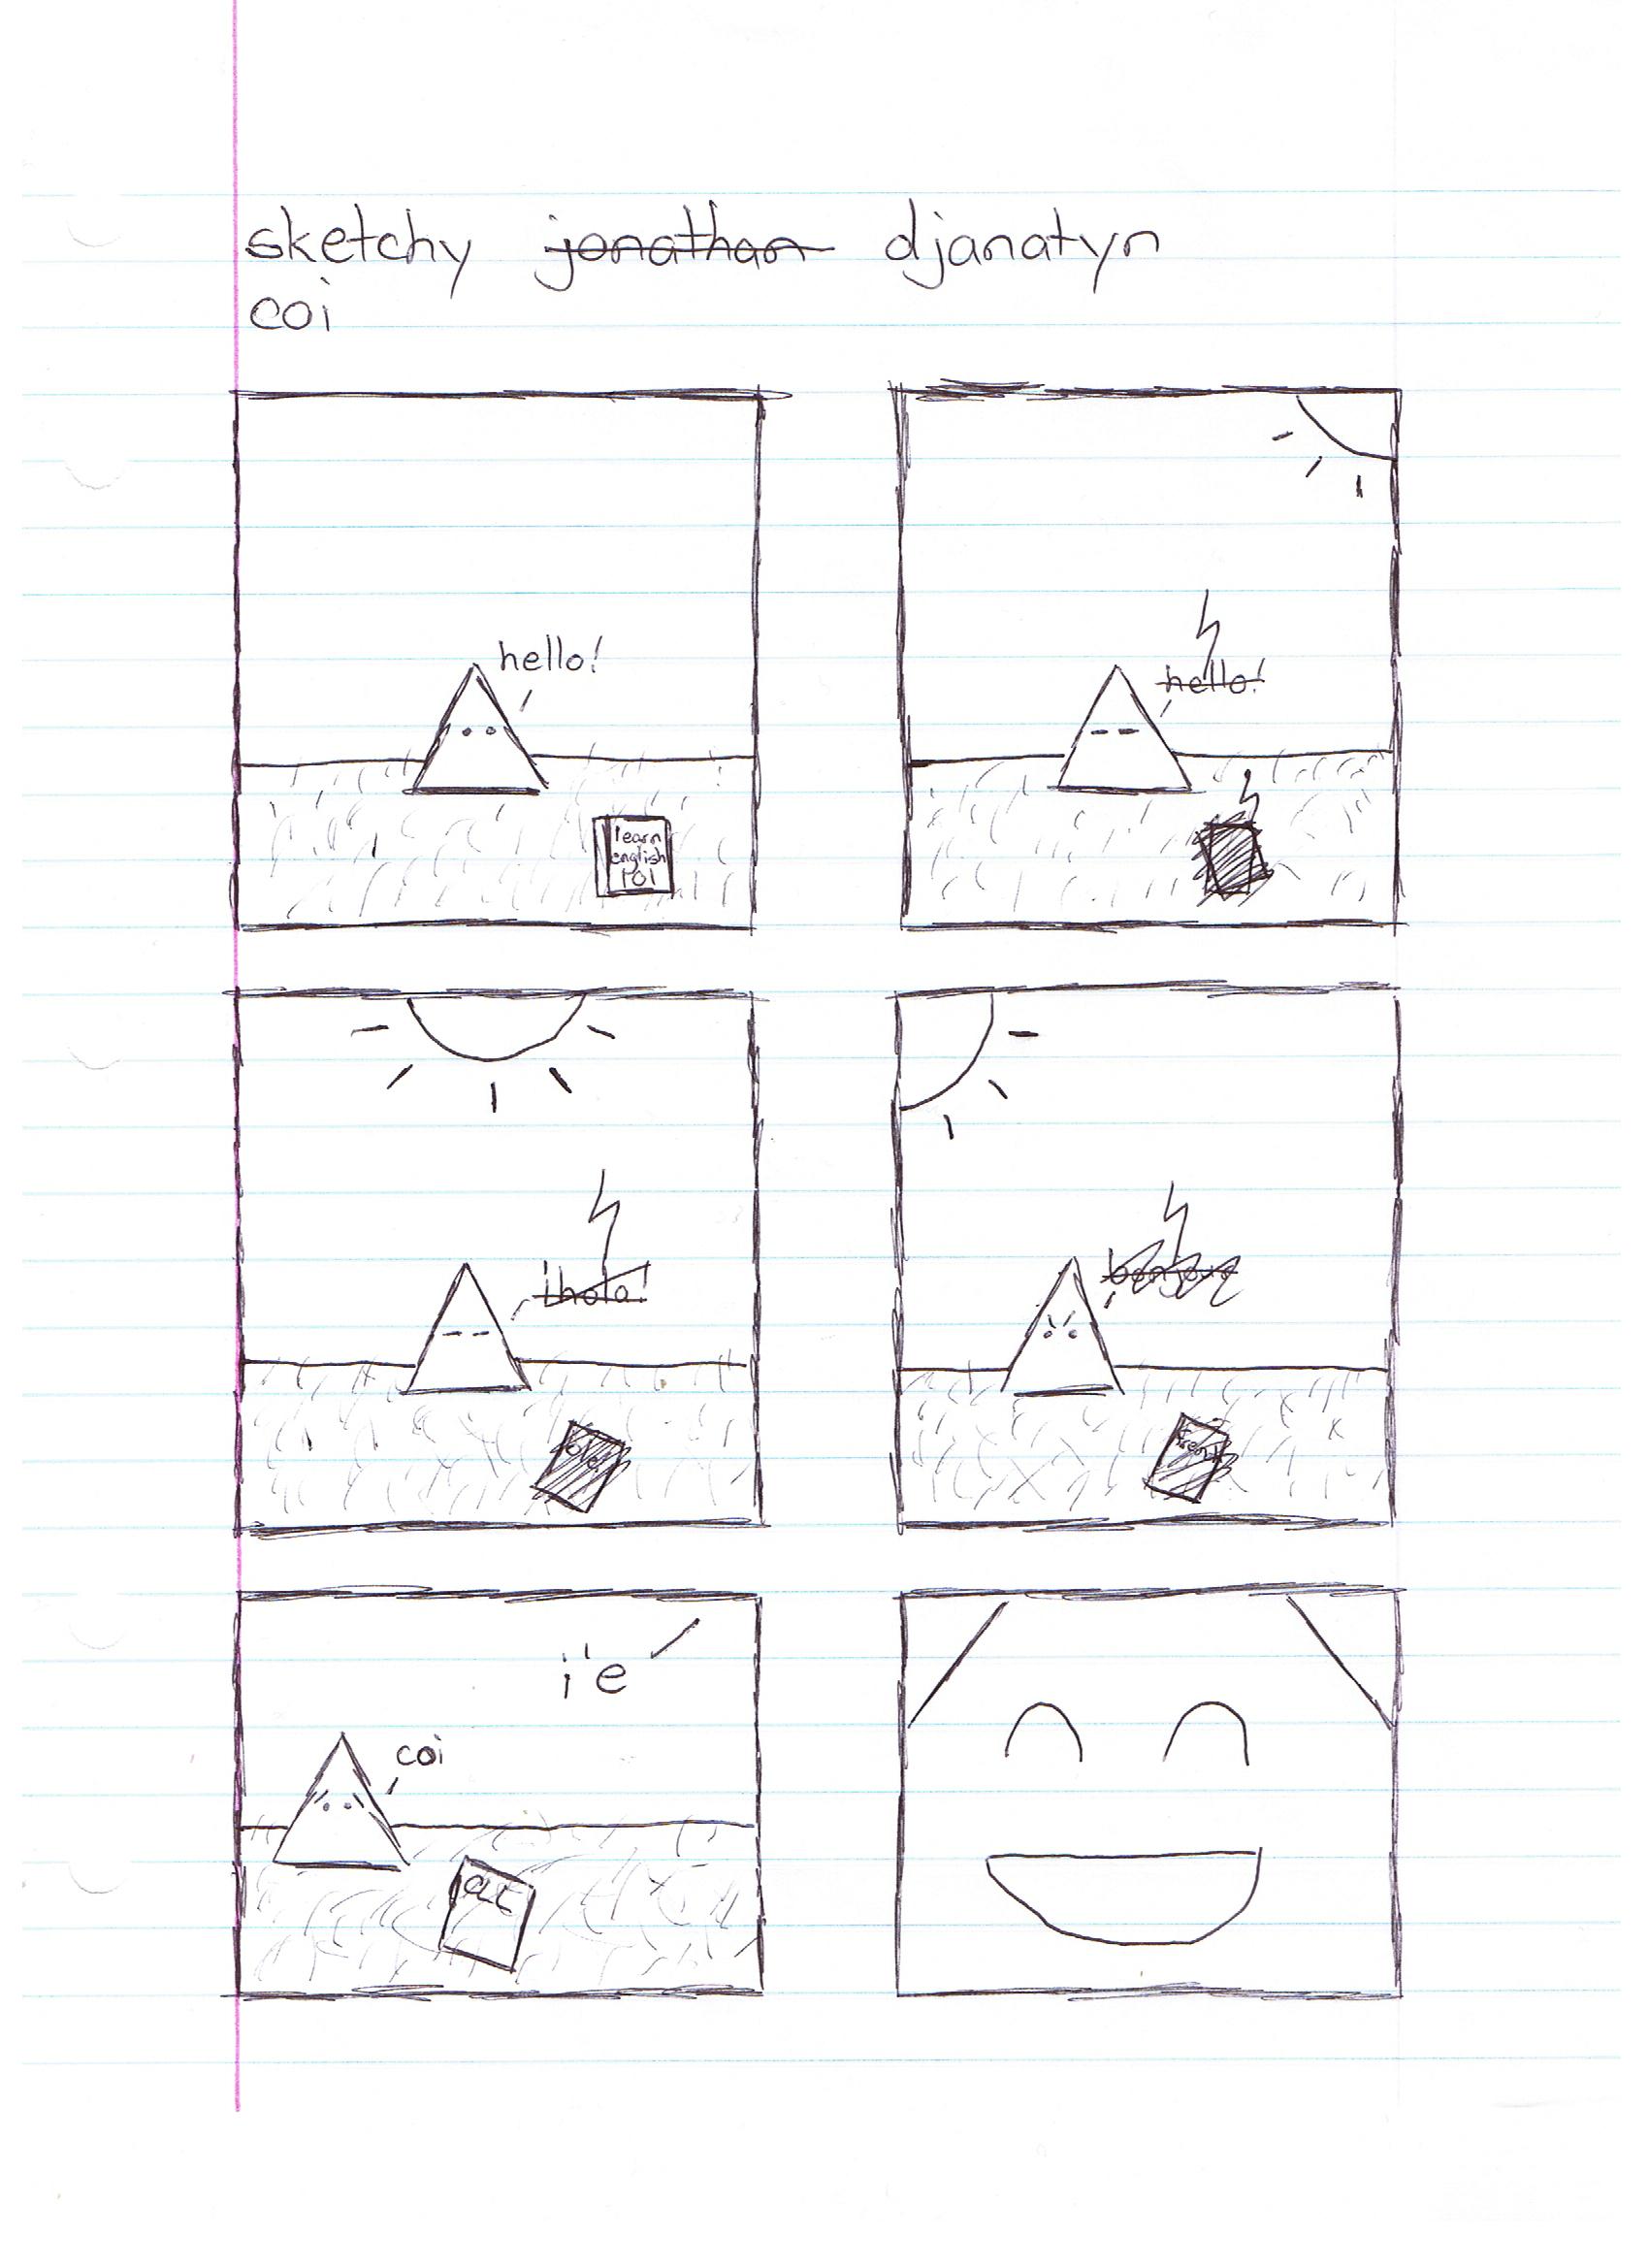 sketchy jonathan djanatyn
coi
hello!
learn
english
101
hello!
¡hola!
ole!
bonjour
french
i'e
coi
CLL